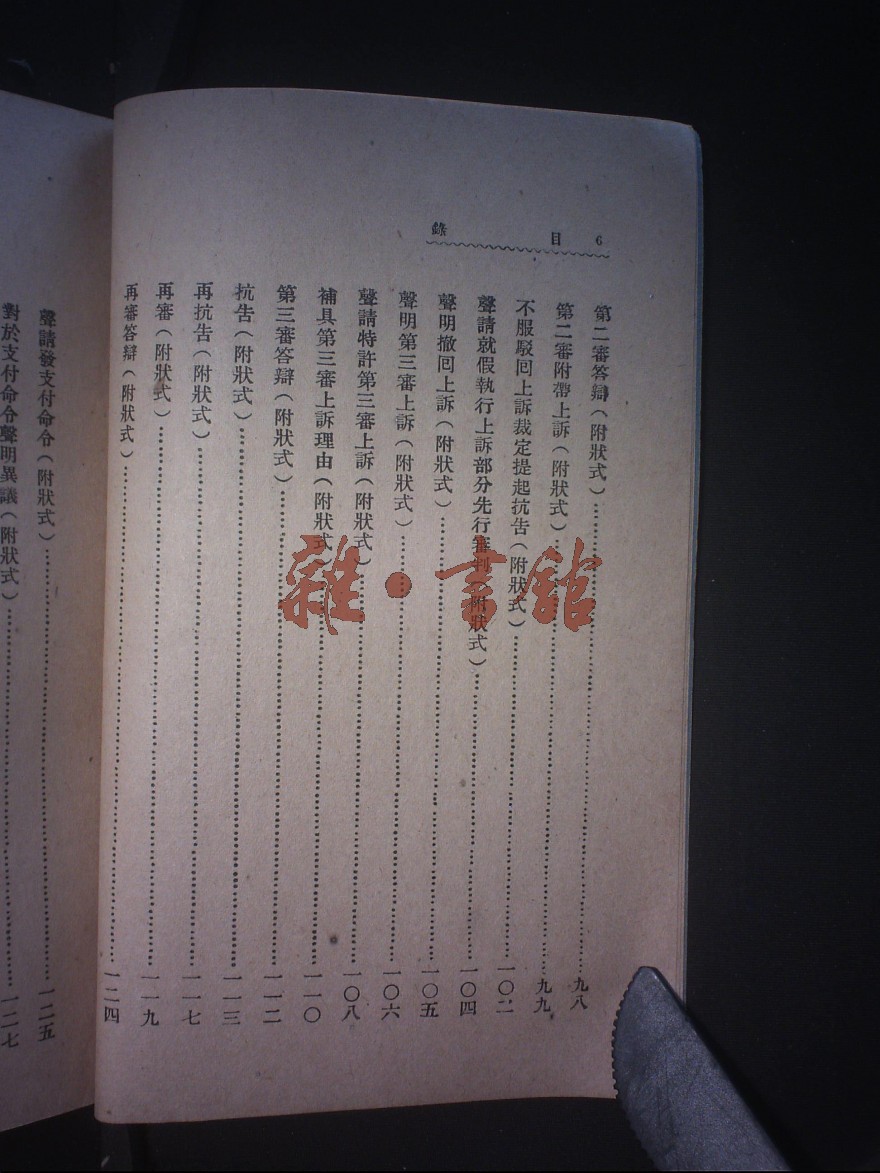 6 目錄
第二審答辯(附狀式)……九八
第二審附帶上訴(附狀式)……九九
不服駁囘上訴裁定提起抗告(附狀式)……一〇二
聲請就假執行上訴部分先行審判(附狀式)……一〇四
聲明撤囘上訴(附狀式)……一〇五
聲明第三審上訴(附狀式)……一〇六
聲請特許第三審上訴(附狀式)……一〇八
補具第三審上訴理由(附狀式)……一一〇
第三審答辯(附狀式)……一一二
抗告(附狀式)……一一三
再抗告(附狀式)……一一七
再審(附狀式)……一一九
再審答辯(附狀式)……一二四
聲請發支付命令(附狀式)……一二五
對於支付命令聲明異議(附狀式)……一二七
雜·書館